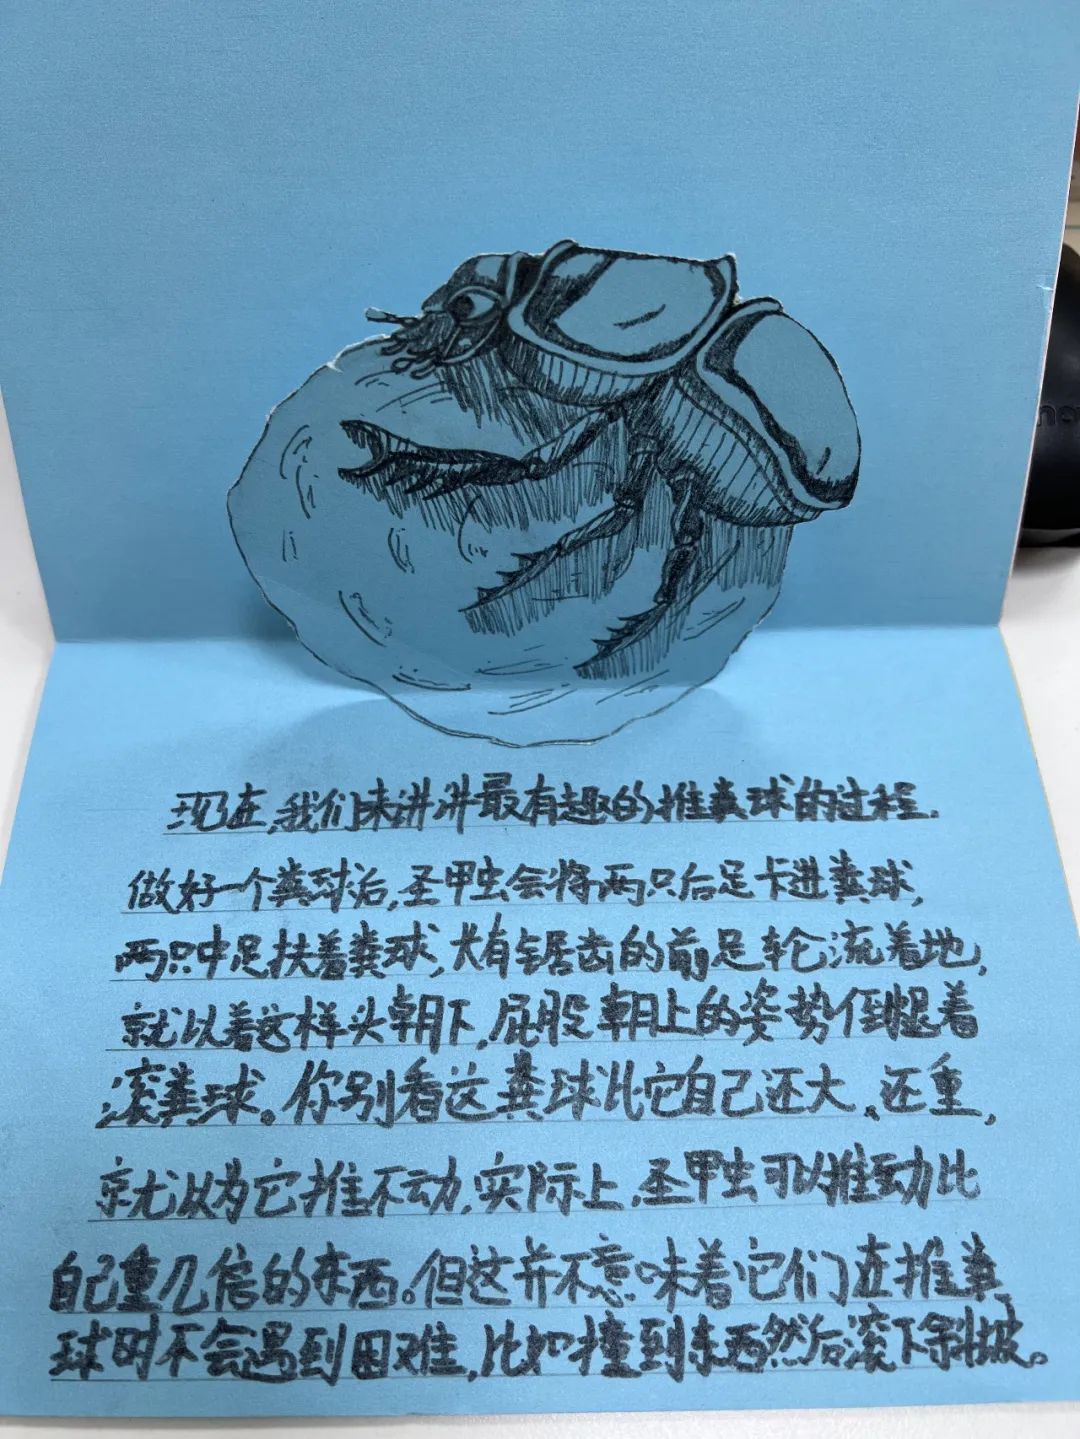 现在,我们来讲讲最有趣的推粪球的过程.
做好一个粪球后,圣甲虫会将两只后足卡进粪球,
两只中足扶着粪球,长有锯齿的前足轮流着地,
就以着这样头朝下,屁股朝上的姿势倒退着
滚粪球。你别看这粪球比它自己还大、还重,
就以为它推不动,实际上,圣甲虫可以推动比
自己重几倍的东西。但这并不意味着它们在推粪
球时不会遇到困难,比如撞到东西然后滚下斜坡。